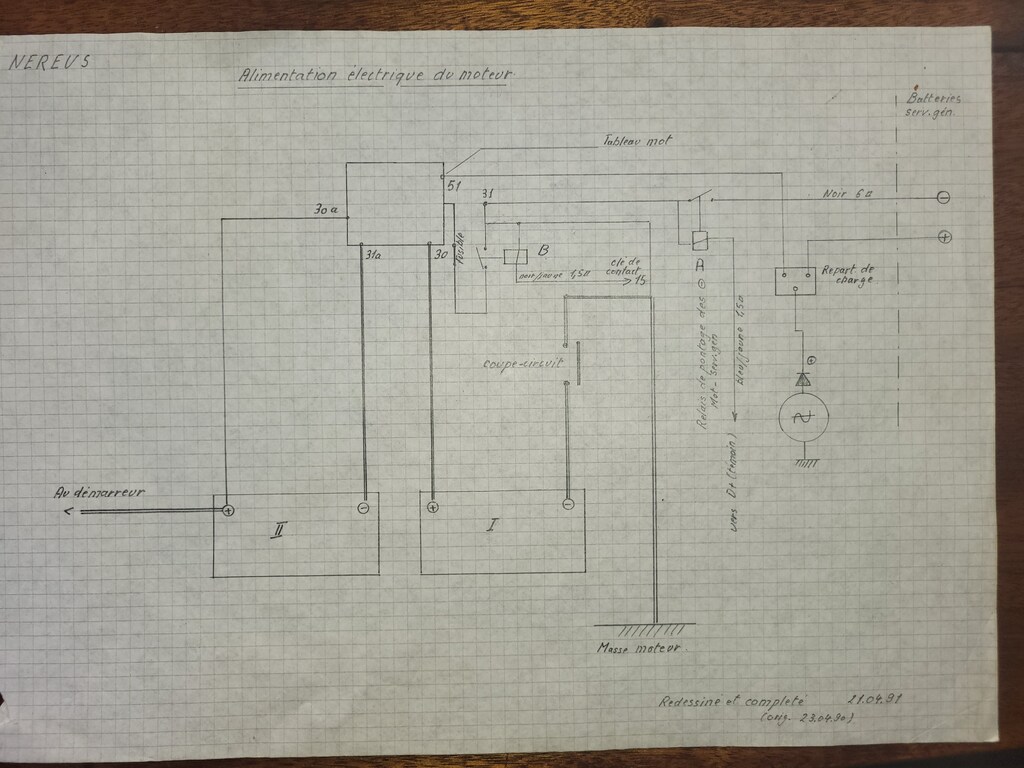 NEREUS
Alimentation électrique du moteur
Batteries
serv. gén.
Tableau mot
51
31
30a
Noir 6□
31a
30
Fusible
B
clé de
contact
15
noir/jaune 1,5□
A
Répart. de
charge
coupe-circuit
Relais de pontage des ⊖
Mot - Serv. gén
bleu/jaune 1,5□
vers D+ (témoin)
Au démarreur
II
I
Masse moteur
Redessiné et complété 21.04.91
(orig. 23.04.90)